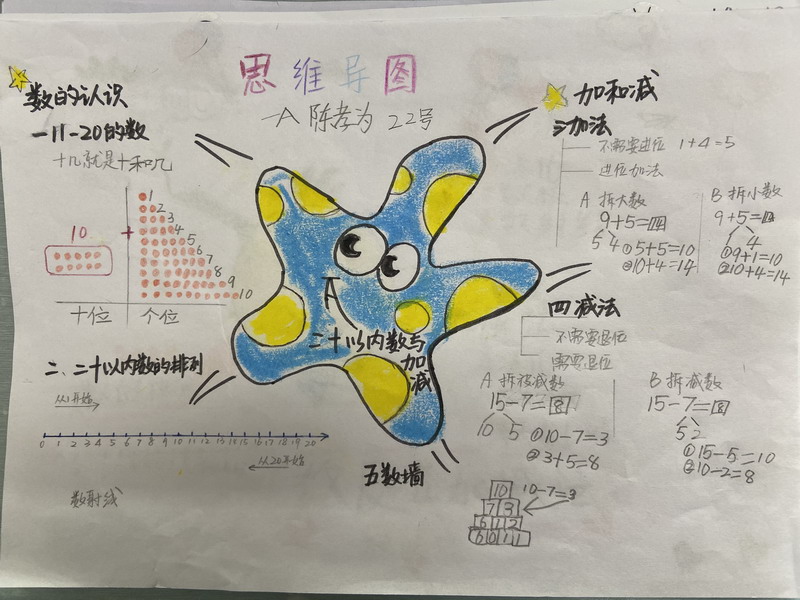 思维导图
一A 陈孝为 22号
数的认识
一 11-20的数
十几就是十和几
10
+
1
2
3
4
5
6
7
8
9
10
十位 个位
二、二十以内数的排列
从1开始
0 1 2 3 4 5 6 7 8 9 10 11 12 13 14 15 16 17 18 19 20
从20开始
数射线
二十以内数与
加
减
加和减
三加法
不需要进位 1+4=5
进位加法
A 拆大数
9+5=14
5 4 ①5+5=10
②10+4=14
B 拆小数
9+5=14
4
①9+1=10
②10+4=14
四 减法
不需要退位
需要退位
A 拆被减数
15-7=8
10 5 ①10-7=3
②3+5=8
B 拆减数
15-7=8
5 2
①15-5=10
②10-2=8
五数墙
10 10-7=3
7 3
6 1 2
6 0 1 1